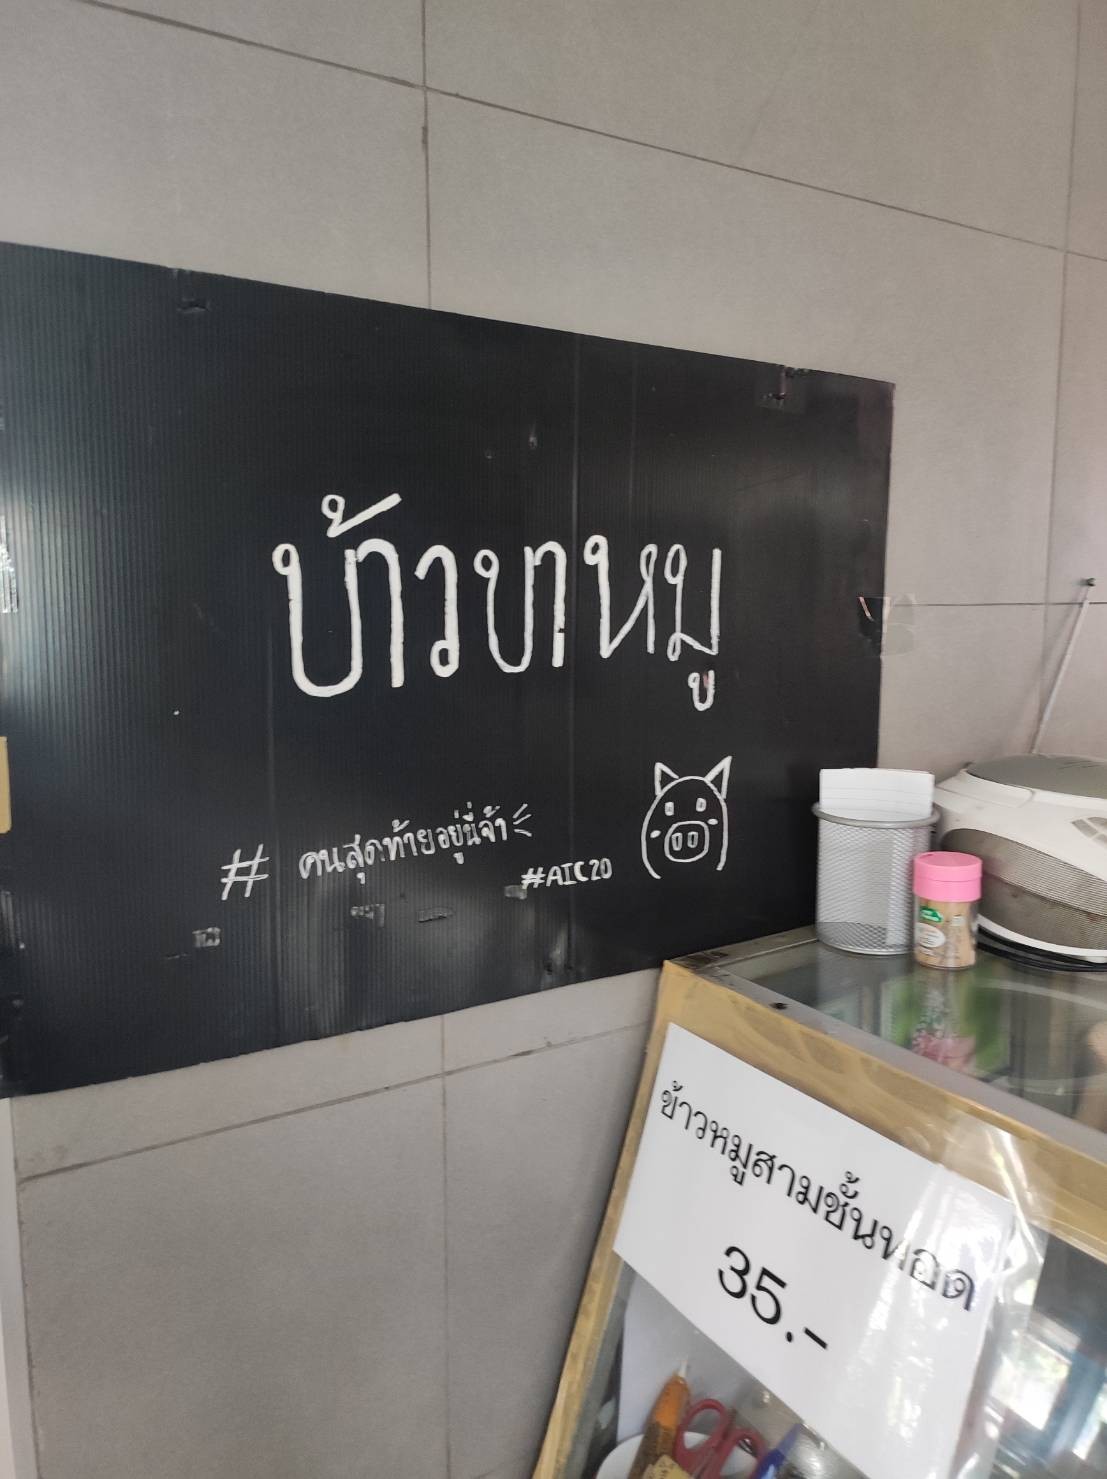 ข้าวขาหมู
# คนสุดท้ายอยู่นี่จ้า
#AIC20
ข้าวหมูสามชั้นทอด
35.-